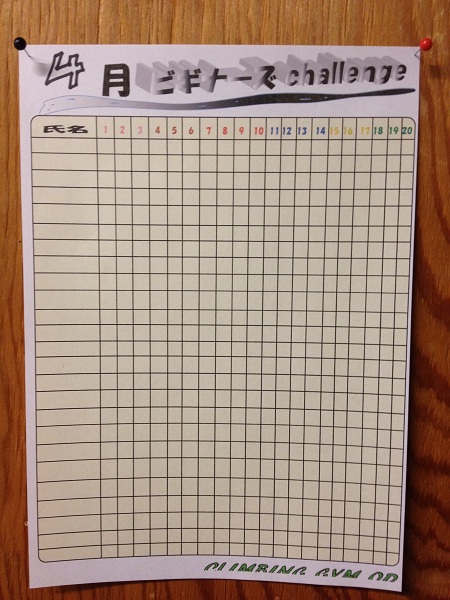 4月ビギナーズchallenge
氏名 1 2 3 4 5 6 7 8 9 10 11 12 13 14 15 16 17 18 19 20
CLIMBING GYM OD